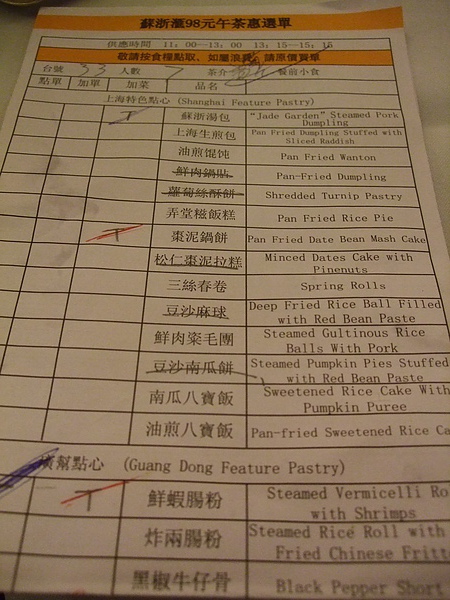 蘇浙滙98元午茶惠選單
供應時間 11:00—13:00 13:15—15:15
敬請按食糧點取、如屬浪費、請原價買單
台號 33 人數 7 茶介 餐前小食
點單 加單 加菜 品名
上海特色點心 (Shanghai Feature Pastry)
蘇浙湯包 "Jade Garden" Steamed Pork Dumpling
上海生煎包 Pan Fried Dumpling Stuffed with Sliced Raddish
油煎馄饨 Pan Fried Wanton
鮮肉鍋貼 Pan-Fried Dumpling
蘿蔔絲酥餅 Shredded Turnip Pastry
弄堂糍飯糕 Pan Fried Rice Pie
棗泥鍋餅 Pan Fried Date Bean Mash Cake
松仁棗泥拉糕 Minced Dates Cake with Pinenuts
三絲春卷 Spring Rolls
豆沙麻球 Deep Fried Rice Ball Filled with Red Bean Paste
鮮肉粢毛團 Steamed Gultinous Rice Balls With Pork
豆沙南瓜餅 Steamed Pumpkin Pies Stuffed with Red Bean Paste
南瓜八寶飯 Sweetened Rice Cake With Pumpkin Puree
油煎八寶飯 Pan-fried Sweetened Rice Ca
廣幫點心 (Guang Dong Feature Pastry)
鮮蝦腸粉 Steamed Vermicelli Ro with Shrimps
炸兩腸粉 Steamed Rice Roll with Fried Chinese Fritt
黑椒牛仔骨 Black Pepper Short